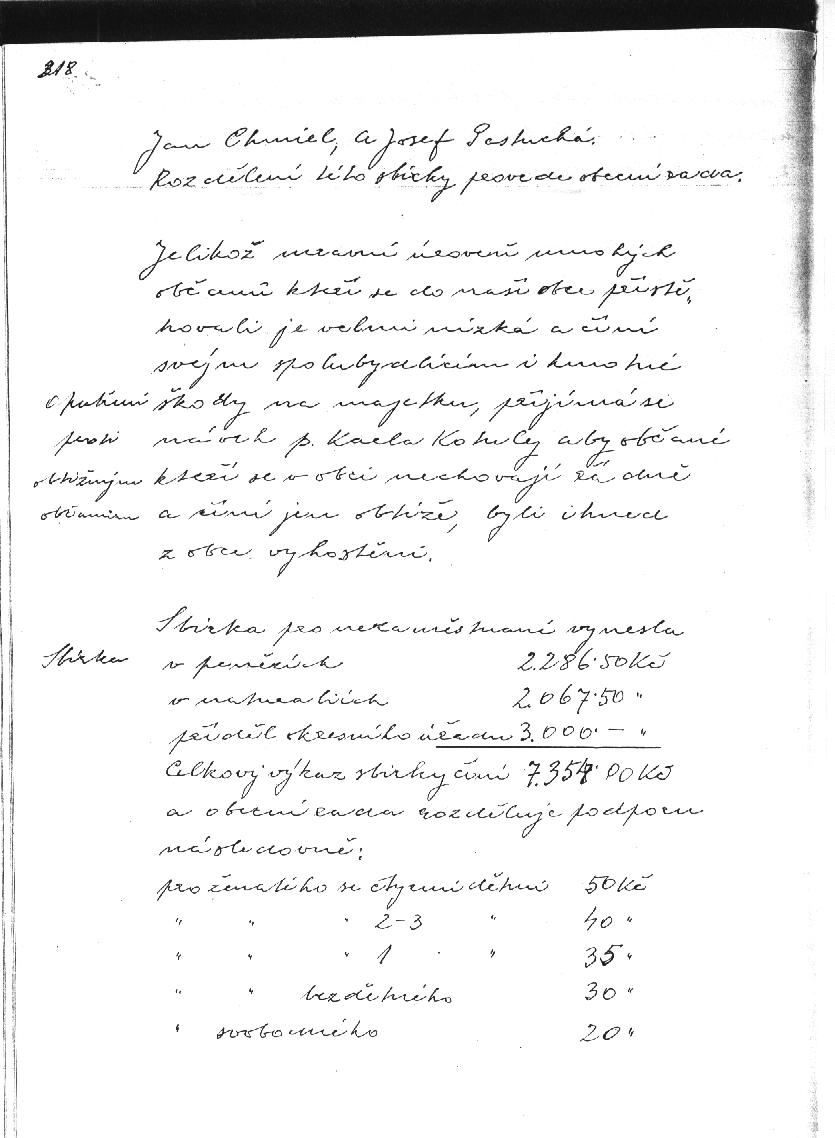 218
Jan Chmiel, a Josef Pastuchá.
Rozdělení této sbírky provede obecní rada.
Jelikož mravní úroveň mnohých
občanů kteří se do naší obce přistě„
hovali je velmi nízká a činí
svým spolubydlícím i hmotné
Opatření škody na majetku, přijímá se
proti návrh p. Karla Kotuly aby občané
obtížným kteří se v obci nechovají řádně
občanům a činí jen obtíže, byli ihned
z obce vyhostěni.
Sbírka pro nezaměstnané vynesla
Sbírka v penězích 2.286·50 Kč
v naturaliích 2.067·50 "
příděl okresního úřadu 3.000·— "
Celkový výkaz sbírky činí 7.354·00 Kč
a obecní rada rozděluje podporu
následovně:
pro ženatého se čtyrmi dětmi 50 Kč
" " " 2-3 " 40 "
" " " 1 " 35 "
" " bezdětného 30 "
" svobodného 20 "